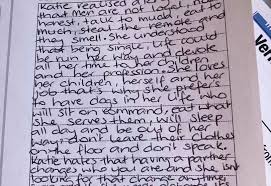 Katie realised a
that men are not loyal, not
honest, talk to much, eat to
much, steal the remote and
than smell. She understood
that being single, life could
be run her way and devote
all her time to her children
and her profession. She loves
her children, herself and her
job that's why she prefers
to have dogs in her life who
will sit on command, eat what
she serves them, will sleep
all day and be out of her
way, don't leave their clothes
on the floor and don't speak.
Katie hates that having a partner
changes who you are and she isnt
looking for that change anytime
Ver